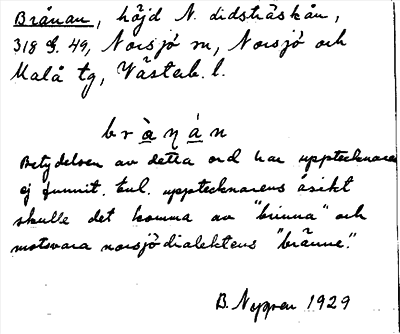 Brånan, höjd N. didsträskån,
318 G. 49, Norsjö sn, Norsjö och
Malå tg, Västerb. l.
brànán
Betydelsen av detta ord har upptecknaren
ej funnit. Enl. upptecknarens åsikt
skulle det komma av "brinna" och
motsvara norsjödialektens "bränne".
B. Nygren 1929